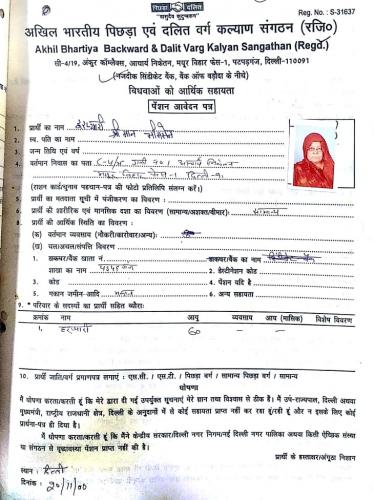 Reg. No. : S-31637
पिछड़ा दलित
"वसुधैव कुटुम्बकम"
अखिल भारतीय पिछड़ा एवं दलित वर्ग कल्याण संगठन (रजि०)
Akhil Bhartiya Backward & Dalit Varg Kalyan Sangathan (Regd.)
सी-4/19, अंकुर कॉम्प्लैक्स, आचार्य निकेतन, मयूर विहार फेस-1, पटपड़गंज, दिल्ली-110091
(नजदीक सिंडीकेट बैंक, बैंक ऑफ बड़ौदा के नीचे)
विधवाओं को आर्थिक सहायता
पेंशन आवेदन पत्र
1. प्रार्थी का नाम
2. स्व. पति का नाम श्रीमान
3. जन्म तिथि एवं वर्ष
4. वर्तमान निवास का पता आचार्य निकेतन
मयूर विहार फेस-1 दिल्ली-91
(राशन कार्ड/चुनाव पहचान-पत्र की फोटो प्रतिलिपि संलग्न करें।)
5. प्रार्थी का मतदाता सूची में पंजीकरण का विवरण :
6. प्रार्थी की शारीरिक एवं मानसिक दशा का विवरण (सामान्य/अशक्त/बीमार): सामान्य
8. प्रार्थी की आर्थिक स्थिति का विवरण :
(क) वर्तमान व्यवसाय (नौकरी/कारोबार/अन्य):
(ख) चल/अचल/संपत्ति विवरण :
1. डाकघर/बैंक खाता नं. डाकघर/बैंक का नाम
शाखा का नाम 2. डेस्टीनेशन कोड
3. कोड 4. पेंशन यदि है
5. मकान जमीन-आदि 6. अन्य सहायता
9. * परिवार के सदस्यों का प्रार्थी सहित ब्यौरा:
क्रमांक नाम आयु व्यवसाय आय (मासिक) विशेष विवरण
1. 60 - -
10. प्रार्थी जाति/वर्ग प्रमाणपत्र लगाएं : एस.सी. / एस.टी. / पिछड़ा वर्ग / सामान्य पिछड़ा वर्ग / सामान्य
घोषणा
मैं घोषणा करता/करती हूं कि मेरे द्वारा दी गई उपर्युक्त सूचनाएं मेरे ज्ञान तथा विश्वास से ठीक है। मैं उप-राज्यपाल, दिल्ली अथवा
मुख्यमंत्री, राष्ट्रीय राजधानी क्षेत्र, दिल्ली के अनुदानों में से कोई सहायता प्राप्त नहीं कर रहा हूं/रही हूं और न इसके लिए कोई
प्रार्थना-पत्र ही दिया है।
मैं घोषणा करता/करती हूं कि मैंने केन्द्रीय सरकार/दिल्ली नगर निगम/नई दिल्ली नगर पालिका अथवा किसी ऐच्छिक संस्था
या संगठन से वृद्धावस्था पेंशन प्राप्त नहीं की है।
प्रार्थी के हस्ताक्षर/अंगूठा निशान
स्थान : दिल्ली
दिनांक : 20/11/00